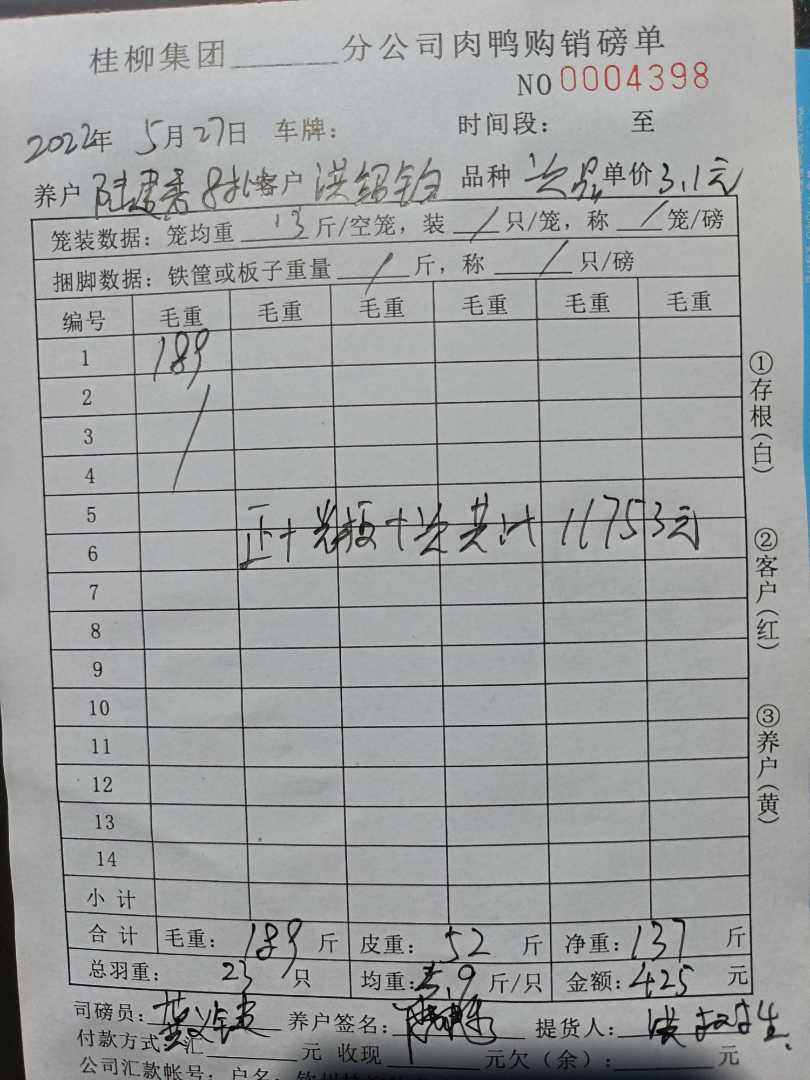 桂柳集团______分公司肉鸭购销磅单
NO 0004398
2022年 5月27日 车牌： 时间段： 至
养户 陆建秀 8批 客户 洪绍铂 品种 次品 单价 3.1元
笼装数据：笼均重 13 斤/空笼，装 / 只/笼，称 / 笼/磅
捆脚数据：铁筐或板子重量 / 斤，称 / 只/磅
编号 毛重 毛重 毛重 毛重 毛重 毛重
1 189
2
3
4
5
正+光板+次共计 11753元
6
7
8
9
10
11
12
13
14
小计
合计 毛重：189 斤 皮重：52 斤 净重：137 斤
总羽重：23 只 均重：5.9 斤/只 金额：425 元
司磅员： 养户签名： 提货人：
付款方式：汇______元 收现______元欠（余）：______元
公司汇款帐号：户名：
①存根（白）
②客户（红）
③养户（黄）